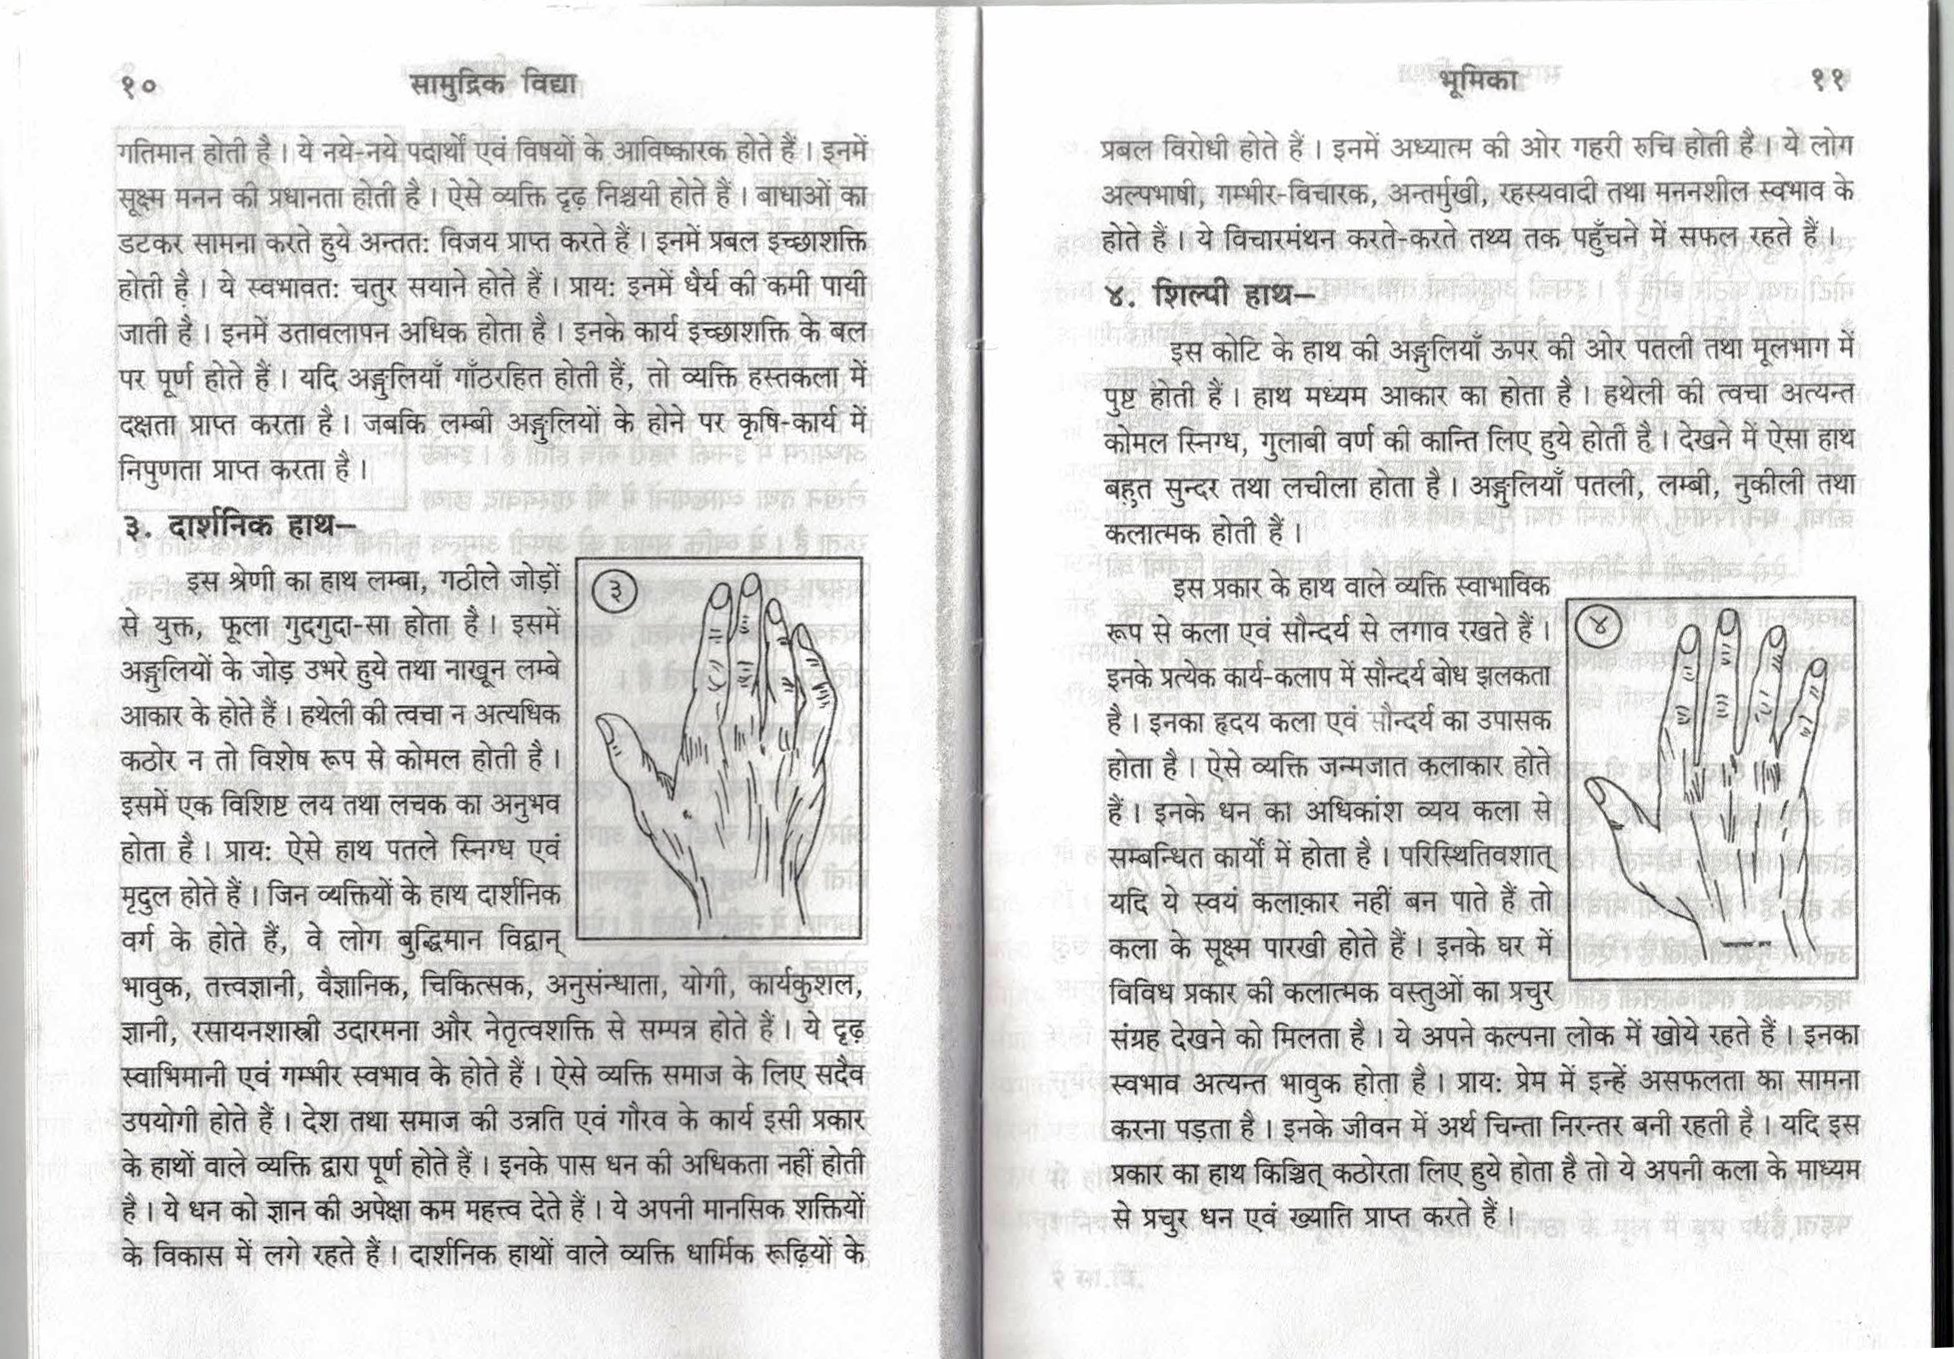 १०
सामुद्रिक विद्या
गतिमान होती है। ये नये-नये पदार्थों एवं विषयों के आविष्कारक होते हैं। इनमें
सूक्ष्म मनन की प्रधानता होती है। ऐसे व्यक्ति दृढ़ निश्चयी होते हैं। बाधाओं का
डटकर सामना करते हुये अन्तत: विजय प्राप्त करते हैं। इनमें प्रबल इच्छाशक्ति
होती है। ये स्वभावत: चतुर सयाने होते हैं। प्राय: इनमें धैर्य की कमी पायी
जाती है। इनमें उतावलापन अधिक होता है। इनके कार्य इच्छाशक्ति के बल
पर पूर्ण होते हैं। यदि अङ्गुलियाँ गाँठरहित होती हैं, तो व्यक्ति हस्तकला में
दक्षता प्राप्त करता है। जबकि लम्बी अङ्गुलियों के होने पर कृषि-कार्य में
निपुणता प्राप्त करता है।
३. दार्शनिक हाथ–
इस श्रेणी का हाथ लम्बा, गठीले जोड़ों
से युक्त, फूला गुदगुदा-सा होता है। इसमें
अङ्गुलियों के जोड़ उभरे हुये तथा नाखून लम्बे
आकार के होते हैं। हथेली की त्वचा न अत्यधिक
कठोर न तो विशेष रूप से कोमल होती है।
इसमें एक विशिष्ट लय तथा लचक का अनुभव
होता है। प्राय: ऐसे हाथ पतले स्निग्ध एवं
मृदुल होते हैं। जिन व्यक्तियों के हाथ दार्शनिक
वर्ग के होते हैं, वे लोग बुद्धिमान विद्वान्
३
भावुक, तत्त्वज्ञानी, वैज्ञानिक, चिकित्सक, अनुसंन्धाता, योगी, कार्यकुशल,
ज्ञानी, रसायनशास्त्री उदारमना और नेतृत्वशक्ति से सम्पन्न होते हैं। ये दृढ़
स्वाभिमानी एवं गम्भीर स्वभाव के होते हैं। ऐसे व्यक्ति समाज के लिए सदैव
उपयोगी होते हैं। देश तथा समाज की उन्नति एवं गौरव के कार्य इसी प्रकार
के हाथों वाले व्यक्ति द्वारा पूर्ण होते हैं। इनके पास धन की अधिकता नहीं होती
है। ये धन को ज्ञान की अपेक्षा कम महत्त्व देते हैं। ये अपनी मानसिक शक्तियों
के विकास में लगे रहते हैं। दार्शनिक हाथों वाले व्यक्ति धार्मिक रूढ़ियों के
भूमिका
११
प्रबल विरोधी होते हैं। इनमें अध्यात्म की ओर गहरी रुचि होती है। ये लोग
अल्पभाषी, गम्भीर-विचारक, अन्तर्मुखी, रहस्यवादी तथा मननशील स्वभाव के
होते है। ये विचारमंथन करते-करते तथ्य तक पहुँचने में सफल रहते हैं।
४. शिल्पी हाथ–
इस कोटि के हाथ की अङ्गुलियाँ ऊपर की ओर पतली तथा मूलभाग में
पुष्ट होती हैं। हाथ मध्यम आकार का होता है। हथेली की त्वचा अत्यन्त
कोमल स्निग्ध, गुलाबी वर्ण की कान्ति लिए हुये होती है। देखने में ऐसा हाथ
बहुत सुन्दर तथा लचीला होता है। अङ्गुलियाँ पतली, लम्बी, नुकीली तथा
कलात्मक होती हैं।
इस प्रकार के हाथ वाले व्यक्ति स्वाभाविक
रूप से कला एवं सौन्दर्य से लगाव रखते हैं।
इनके प्रत्येक कार्य-कलाप में सौन्दर्य बोध झलकता
है। इनका हृदय कला एवं सौन्दर्य का उपासक
होता है। ऐसे व्यक्ति जन्मजात कलाकार होते
हैं। इनके धन का अधिकांश व्यय कला से
सम्बन्धित कार्यों में होता है। परिस्थितिवशात्
यदि ये स्वयं कलाकार नहीं बन पाते हैं तो
कला के सूक्ष्म पारखी होते हैं। इनके घर में
विविध प्रकार की कलात्मक वस्तुओं का प्रचुर
४
संग्रह देखने को मिलता है। ये अपने कल्पना लोक में खोये रहते हैं। इनका
स्वभाव अत्यन्त भावुक होता है। प्राय: प्रेम में इन्हें असफलता का सामना
करना पड़ता है। इनके जीवन में अर्थ चिन्ता निरन्तर बनी रहती है। यदि इस
प्रकार का हाथ किञ्चित् कठोरता लिए हुये होता है तो ये अपनी कला के माध्यम
से प्रचुर धन एवं ख्याति प्राप्त करते हैं।